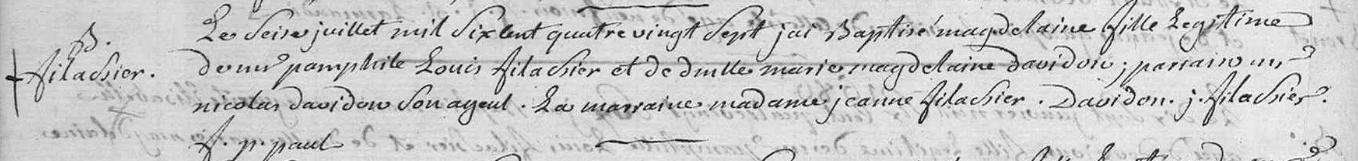 B.
filassier.
Le Seise juillet mil Six Cent quatre vingt Sept jai Baptisé magdelaine fille Legitime
de mr pamphile Louis filassier et de dmlle marie magdelaine davidon; parrain mr
nicolas davidon Son ayeul. La marraine madame jeanne filassier. Davidon. j. filassier.
f. p. paul